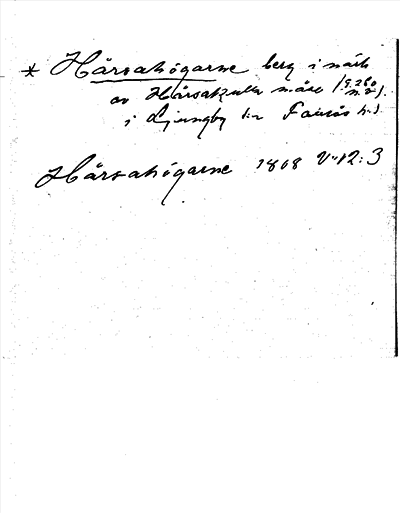 * Hårsahögarne berg i närh
av Hårsakulla måse (s. 260 n. 2).
i Ljungby sn Faurås hd
Hårsahögarne 1868 V:12:3